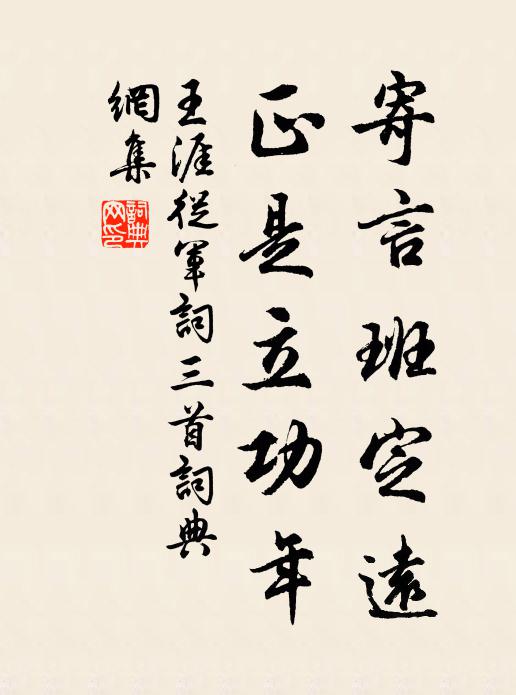 寄言班定遠
正是立功年
王涯從軍詞三首詞典
網集
詞典
网印